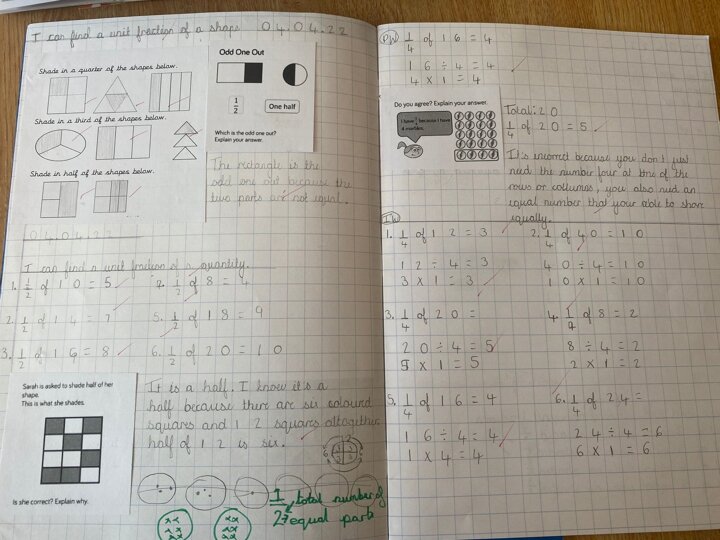 I can find a unit fraction of a shape 04.04.22
Shade in a quarter of the shapes below.
Shade in a third of the shapes below.
Shade in half of the shapes below.
Odd One Out
1/2
One half
Which is the odd one out?
Explain your answer.
The rectangle is the
odd one out because the
two parts are not equal.
04.04.22
I can find a unit fraction of a quantity.
1. 1/2 of 10 = 5
2. 1/2 of 14 = 7
3. 1/2 of 16 = 8
1/2 of 8 = 4
5. 1/2 of 18 = 9
6. 1/2 of 20 = 10
Sarah is asked to shade half of her
shape.
This is what she shades.
Is she correct? Explain why.
It is a half. I know it's a
half because there are six coloured
squares and 12 squares altogether
half of 12 is six.
1/2 total number of
equal parts
PW 1/4 of 16 = 4
16 ÷ 4 = 4
4 × 1 = 4
Do you agree? Explain your answer.
because I have
4 marbles.
Total: 20
1/4 of 20 = 5
It's incorrect because you don't just
need the number four at one of the
rows or collumns, you also need an
equal number that your able to share
equally.
IW
1. 1/4 of 12 = 3
12 ÷ 4 = 3
3 × 1 = 3
2. 1/4 of 40 = 10
40 ÷ 4 = 10
10 × 1 = 10
3. 1/4 of 20 =
20 ÷ 4 = 5
5 × 1 = 5
4. 1/4 of 8 = 2
8 ÷ 4 = 2
2 × 1 = 2
5. 1/4 of 16 = 4
16 ÷ 4 = 4
1 × 4 = 4
6. 1/4 of 24 =
24 ÷ 4 = 6
6 × 1 = 6